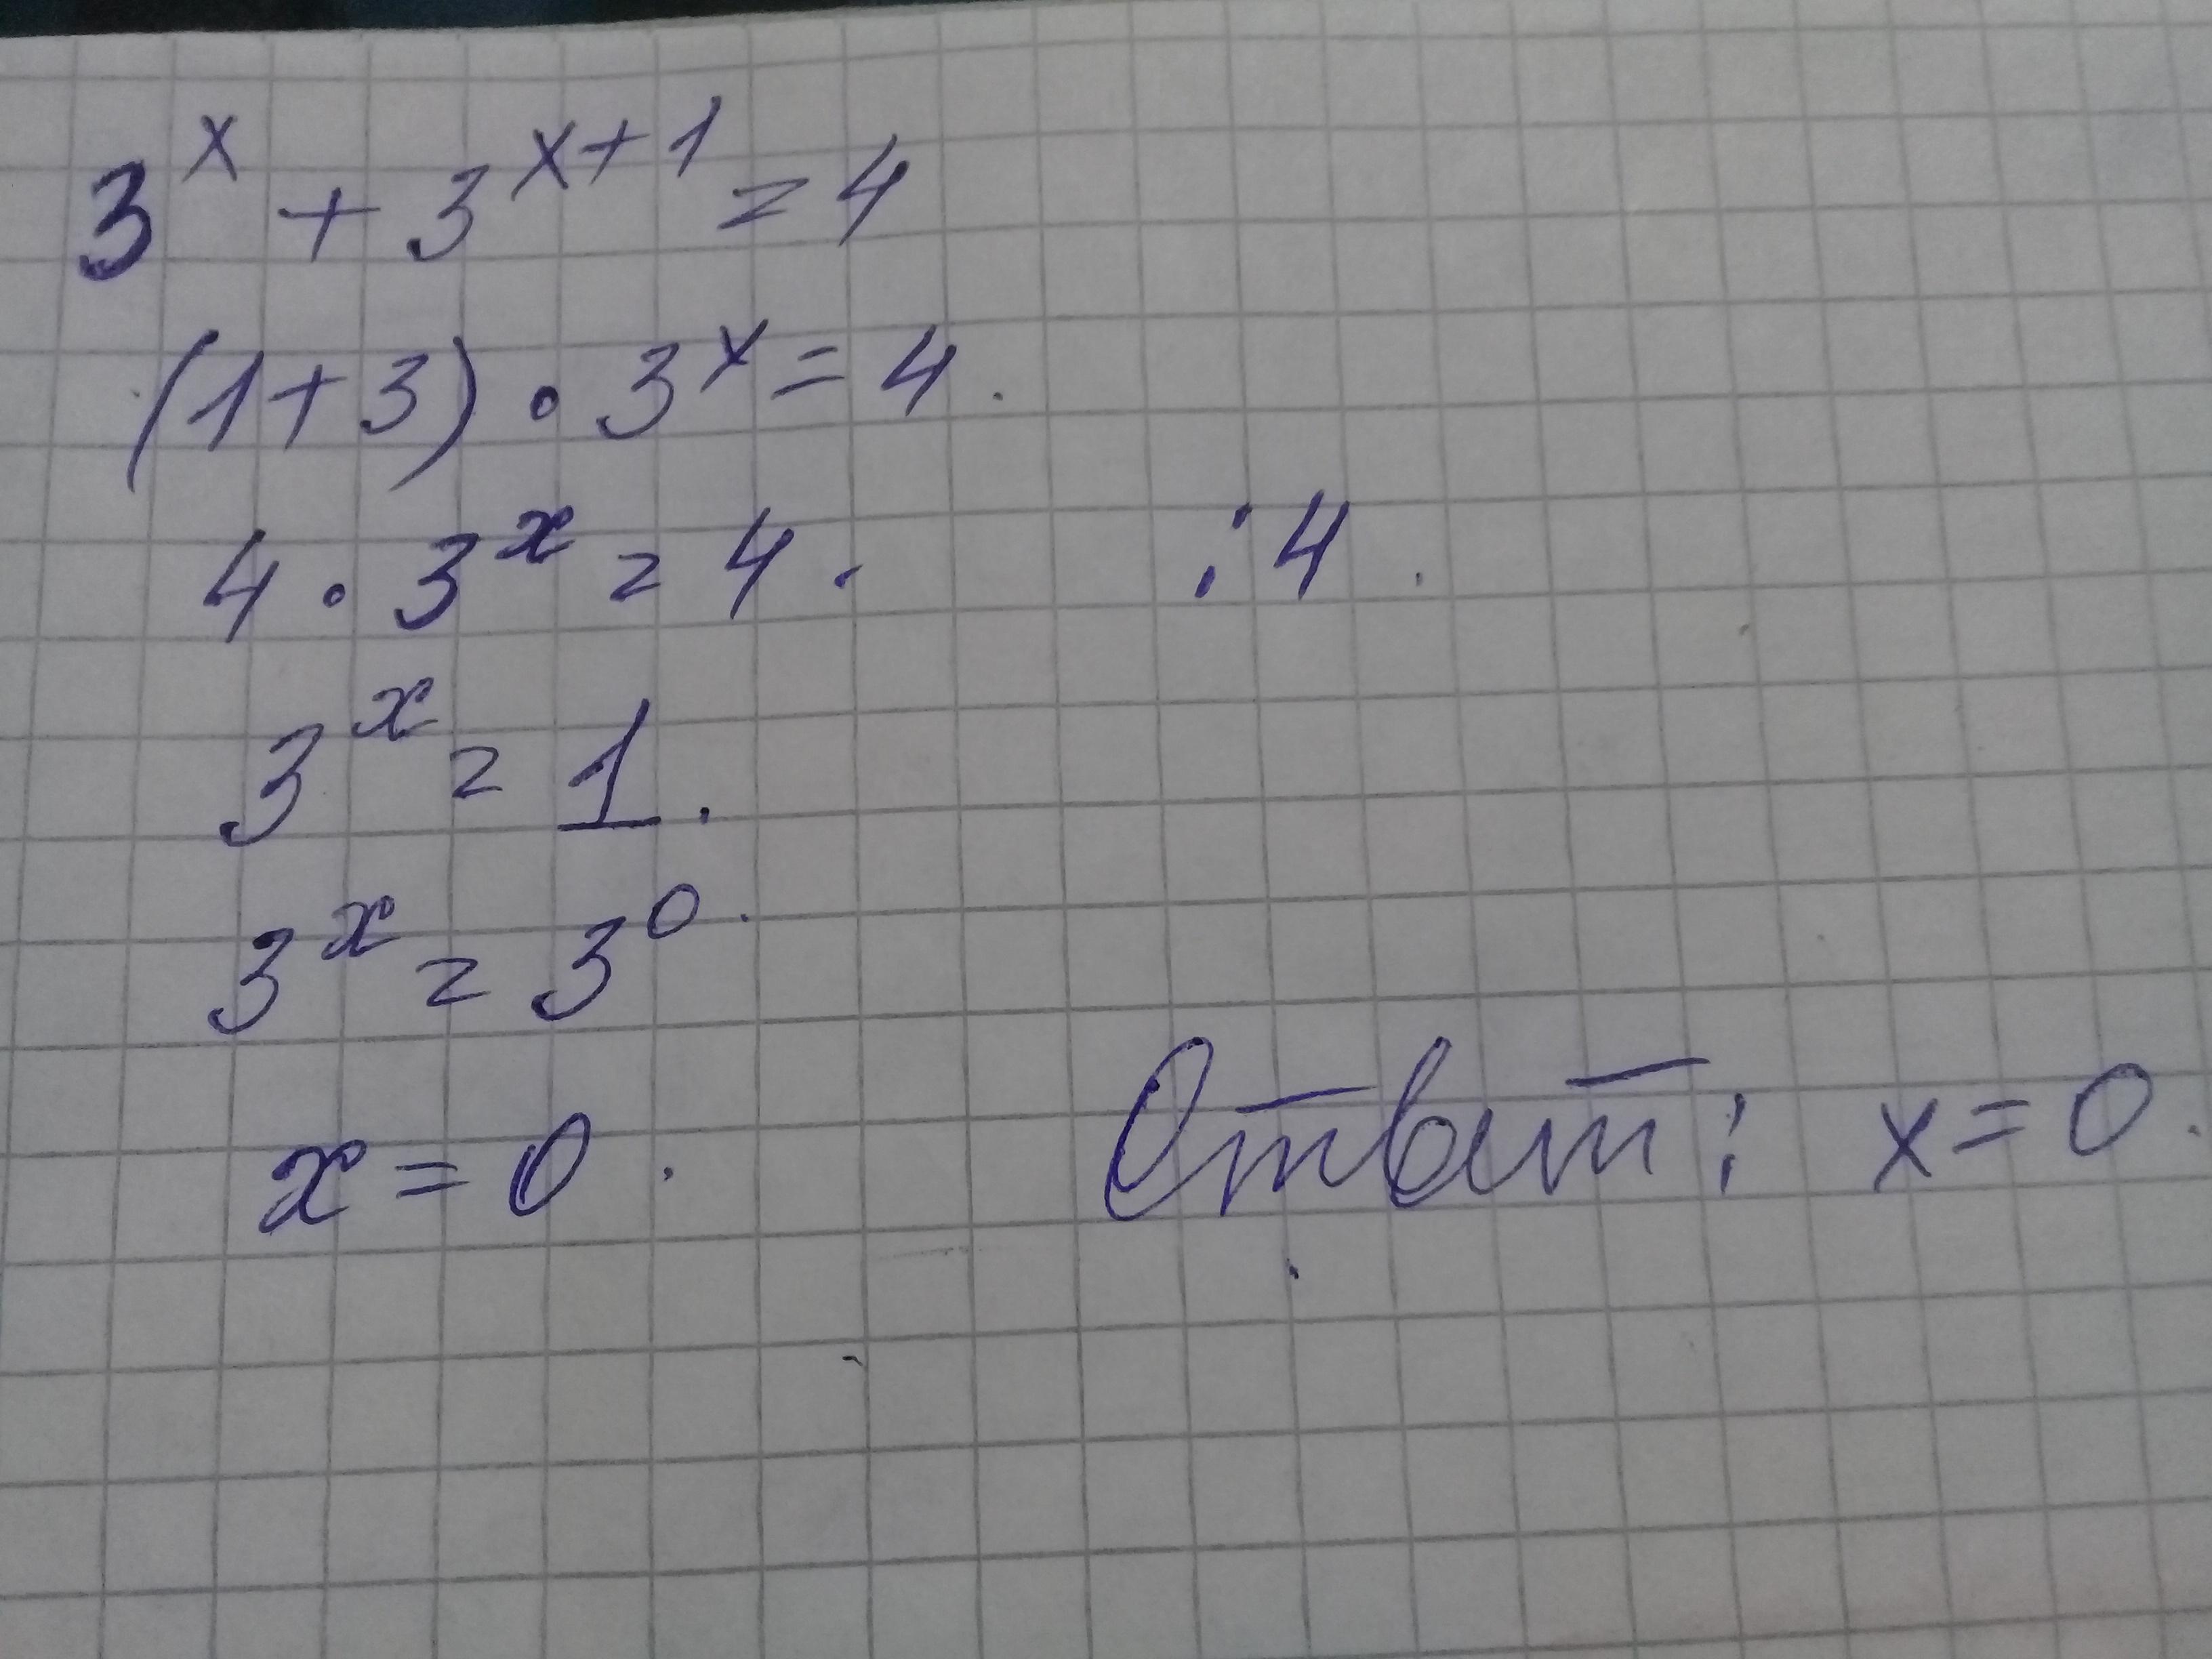 3^x + 3^{x+1} = 4
(1+3) · 3^x = 4.
4 · 3^x = 4. :4.
3^x = 1.
3^x = 3^0.
x = 0. Ответ: x = 0.